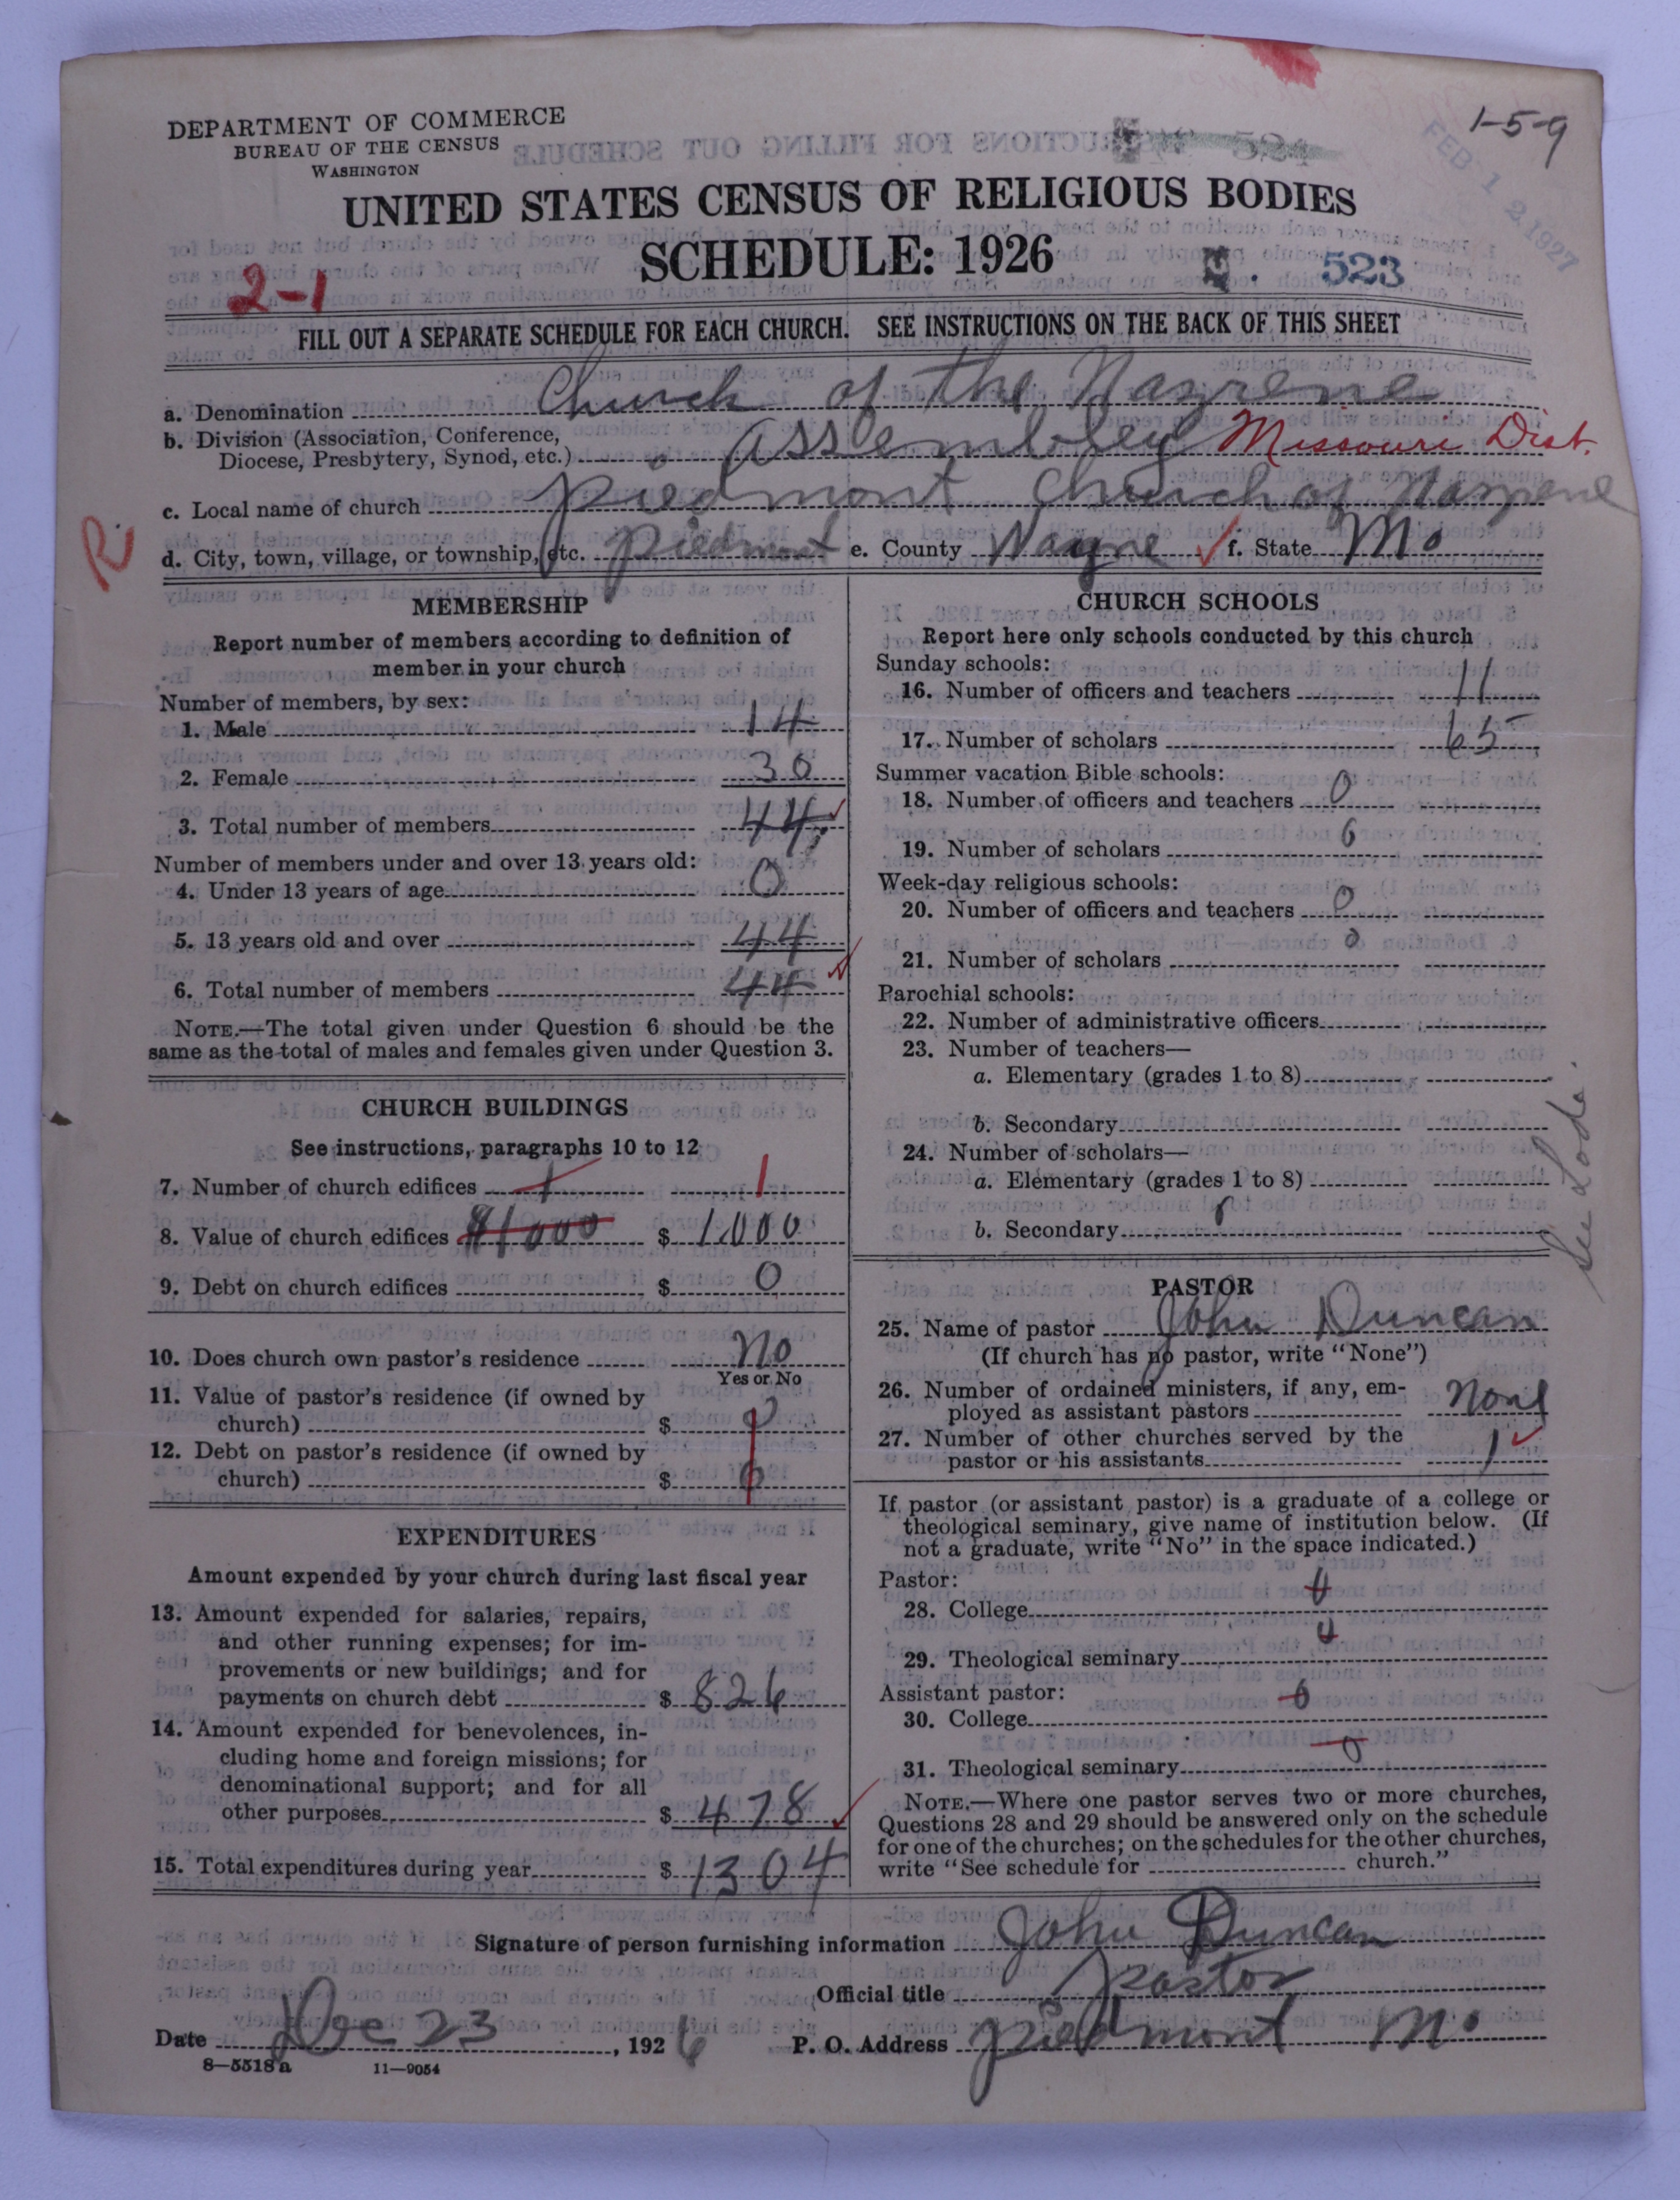 DEPARTMENT OF COMMERCE
BUREAU OF THE CENSUS
WASHINGTON
1-5-9
FEB 12 1927
UNITED STATES CENSUS OF RELIGIOUS BODIES
SCHEDULE: 1926
2-1
523
FILL OUT A SEPARATE SCHEDULE FOR EACH CHURCH. SEE INSTRUCTIONS ON THE BACK OF THIS SHEET
a. Denomination Church of the Nazrene
b. Division (Association, Conference,
Diocese, Presbytery, Synod, etc.) Assembley Missouri Dist.
c. Local name of church Piedmont Church of Nazrene
R
d. City, town, village, or township, etc. Piedmont e. County Wayne f. State Mo
MEMBERSHIP
Report number of members according to definition of
member in your church
Number of members, by sex:
1. Male 14
2. Female 30
3. Total number of members 44
Number of members under and over 13 years old:
4. Under 13 years of age 0
5. 13 years old and over 44
6. Total number of members 44
NOTE.—The total given under Question 6 should be the
same as the total of males and females given under Question 3.
CHURCH BUILDINGS
See instructions, paragraphs 10 to 12
7. Number of church edifices 1 1
8. Value of church edifices $1000 $ 1000
9. Debt on church edifices $ 0
10. Does church own pastor's residence No
Yes or No
11. Value of pastor's residence (if owned by
church) $ 0
12. Debt on pastor's residence (if owned by
church) $ 0
EXPENDITURES
Amount expended by your church during last fiscal year
13. Amount expended for salaries, repairs,
and other running expenses; for im-
provements or new buildings; and for
payments on church debt $ 826
14. Amount expended for benevolences, in-
cluding home and foreign missions; for
denominational support; and for all
other purposes $ 478
15. Total expenditures during year $ 1304
CHURCH SCHOOLS
Report here only schools conducted by this church
Sunday schools:
16. Number of officers and teachers 11
17. Number of scholars 65
Summer vacation Bible schools:
18. Number of officers and teachers 0
19. Number of scholars 0
Week-day religious schools:
20. Number of officers and teachers 0
21. Number of scholars 0
Parochial schools:
22. Number of administrative officers
23. Number of teachers—
a. Elementary (grades 1 to 8)
b. Secondary
24. Number of scholars—
a. Elementary (grades 1 to 8)
b. Secondary
See Lodi.
PASTOR
25. Name of pastor John Duncan
(If church has no pastor, write "None")
26. Number of ordained ministers, if any, em-
ployed as assistant pastors None
27. Number of other churches served by the
pastor or his assistants 1
If pastor (or assistant pastor) is a graduate of a college or
theological seminary, give name of institution below. (If
not a graduate, write "No" in the space indicated.)
Pastor:
28. College 0
29. Theological seminary 0
Assistant pastor:
30. College 0
31. Theological seminary 0
NOTE.—Where one pastor serves two or more churches,
Questions 28 and 29 should be answered only on the schedule
for one of the churches; on the schedules for the other churches,
write "See schedule for church."
Signature of person furnishing information John Duncan
Official title Pastor
Date Dec 23, 1926 P. O. Address Piedmont Mo
8—5518 a 11—9054